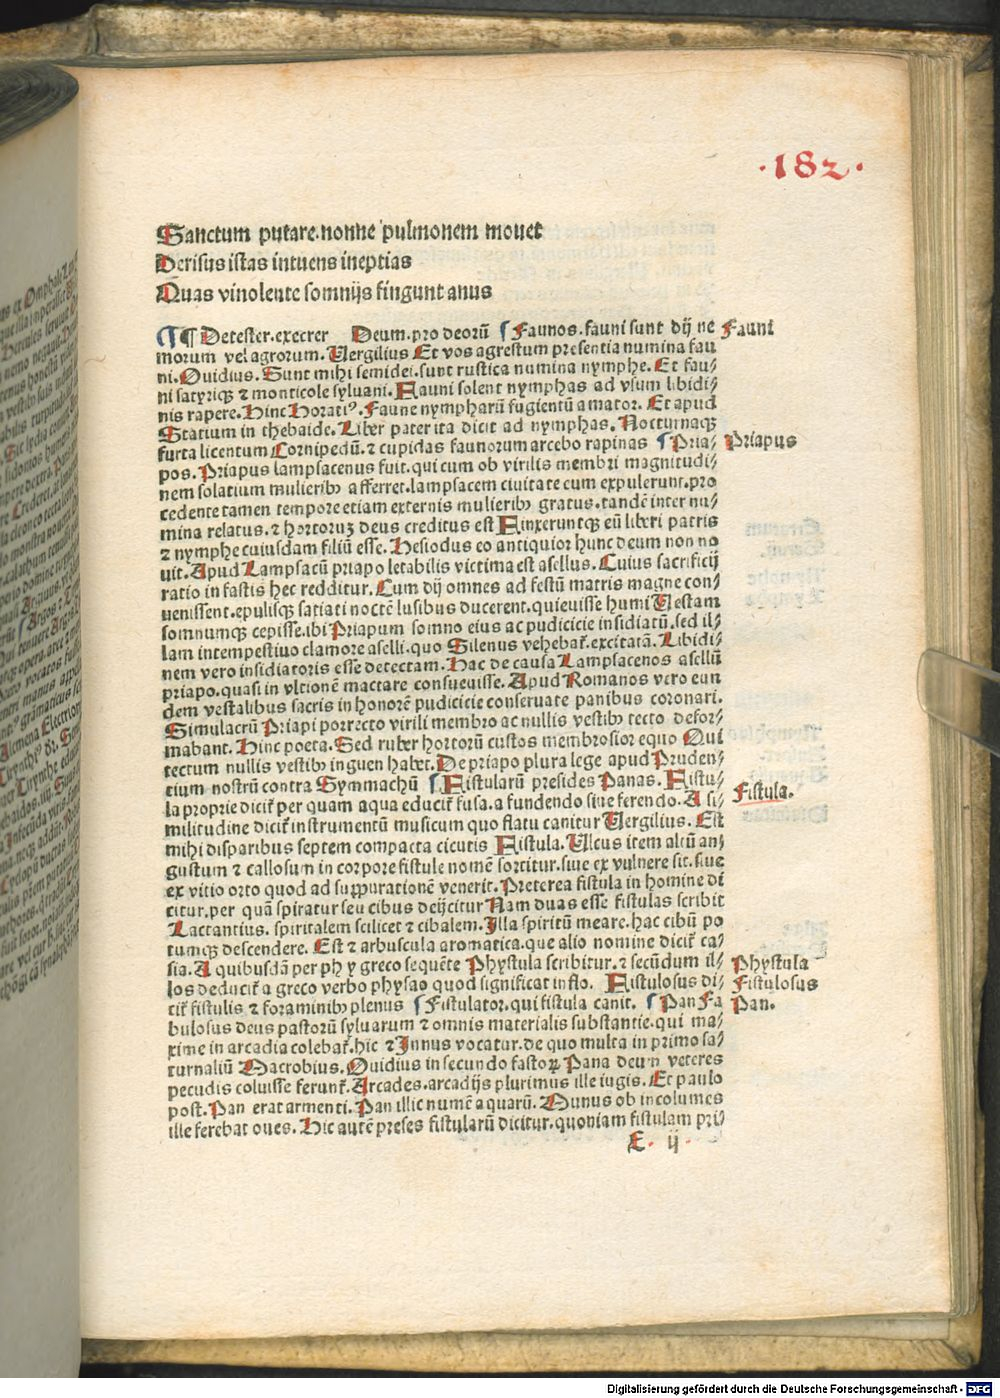 ·182·
Sanctum putare.nonne pulmonem mouet
Derisus istas intuens ineptias
Quas vinolente somnijs fingunt anus
¶¶ Detester.execrer Deum.pro deorū ¶ Faunos.fauni sunt dij ne Fauni
morum vel agrorum. Uergilius Et vos agrestum presentia numina fau
ni. Ouidius. Sunt mihi semidei.sunt rustica numina nymphe. Et fau⸗
ni satyriqꝫ ⁊ monticole syluani. Fauni solent nymphas ad vsum libidi⸗
nis rapere. Hinc Horatiꝰ. Faune nympharū fugientū amator. Et apud
Statium in thebaide. Liber pater ita dicit ad nymphas. Nocturnaqꝫ
furta licentum Cornipedū. ⁊ cupidas faunorum arcebo rapinas ¶ Pria⸗ Priapus
pos. Priapus lampsacenus fuit. qui cum ob virilis membri magnitudi⸗
nem solatium mulieribꝫ afferret. lampsacem ciuitate cum expulerunt. pro
cedente tamen tempore etiam externis mulieribꝫ gratus. tandē inter nu⸗
mina relatus. ⁊ hortoruꝫ deus creditus est Finxeruntqꝫ eū liberi patris
⁊ nymphe cuiusdam filiū esse. Hesiodus eo antiquior hunc deum non no
uit. Apud Lampsacū priapo letabilis victima est asellus. Cuius sacrificij
ratio in fastis hec redditur. Cum dij omnes ad festū matris magne con⸗
uenissent. epulisqꝫ satiati noctē lusibus ducerent. quieuisse humi Uestam
somnumqꝫ cepisse. ibi Priapum somno eius ac pudicicie insidiatū. sed il⸗
lam intempestiuo clamore aselli. quo Silenus vehebat̄. excitatā. Libidi⸗
nem vero insidiatoris esse detectam. Hac de causa Lampsacenos asellū
priapo. quasi in vltionē mactare consueuisse. Apud Romanos vero eun
dem vestalibus sacris in honorē pudicicie conseruate panibus coronari.
Simulacrū Priapi porrecto virili membro ac nullis vestibꝫ tecto defor⸗
mabant. Hinc poeta. Sed ruber hortorū custos membrosior equo Qui
tectum nullis vestibꝫ inguen habet. De priapo plura lege apud Pruden⸗
tium nostrū contra Symmachū ¶ Fistularū presides Panas. Fistu⸗
la proprie dicit̄ per quam aqua educit̄ fusa. a fundendo siue ferendo. A si⸗ Fistula.
militudine dicit̄ instrumentū musicum quo flatu canitur Uergilius. Est
mihi disparibus septem compacta cicutis Fistula. Ulcus item altū an⸗
gustum ⁊ callosum in corpore fistule nomē sortitur. siue ex vulnere sit. siue
ex vitio orto quod ad suppurationē venerit. Preterea fistula in homine di
citur. per quā spiratur seu cibus deijcitur Nam duas esse fistulas scribit
Lactantius. spiritalem scilicet ⁊ cibalem. Illa spiritū meare. hac cibū po
tumqꝫ descendere. Est ⁊ arbuscula aromatica. que alio nomine dicit̄ ca⸗
sia. A quibusdā per ph y greco sequēte Phystula scribitur. ⁊ secūdum il⸗ Phystula
los deducit̄ a greco verbo physao quod significat inflo. Fistulosus di⸗ Fistulosus
cit̄ fistulis ⁊ foraminibꝫ plenus ¶ Fistulator. qui fistula canit. ¶ Pan Fa Pan.
bulosus deus pastorū syluarum ⁊ omnis materialis substantie. qui ma⸗
xime in arcadia colebat̄. hic ⁊ Innus vocatur. de quo multa in primo sa⸗
turnaliū Macrobius. Ouidius in secundo fastoꝝ Pana deum veteres
pecudis coluisse ferunt̄. Arcades. arcadijs plurimus ille iugis. Et paulo
post. Pan erat armenti. Pan illic numē aquarū. Munus ob incolumes
ille ferebat oues. Hic autē preses fistularū dicitur. quoniam fistulam pri⸗
E. ij
Digitalisierung gefördert durch die Deutsche Forschungsgemeinschaft - DFG